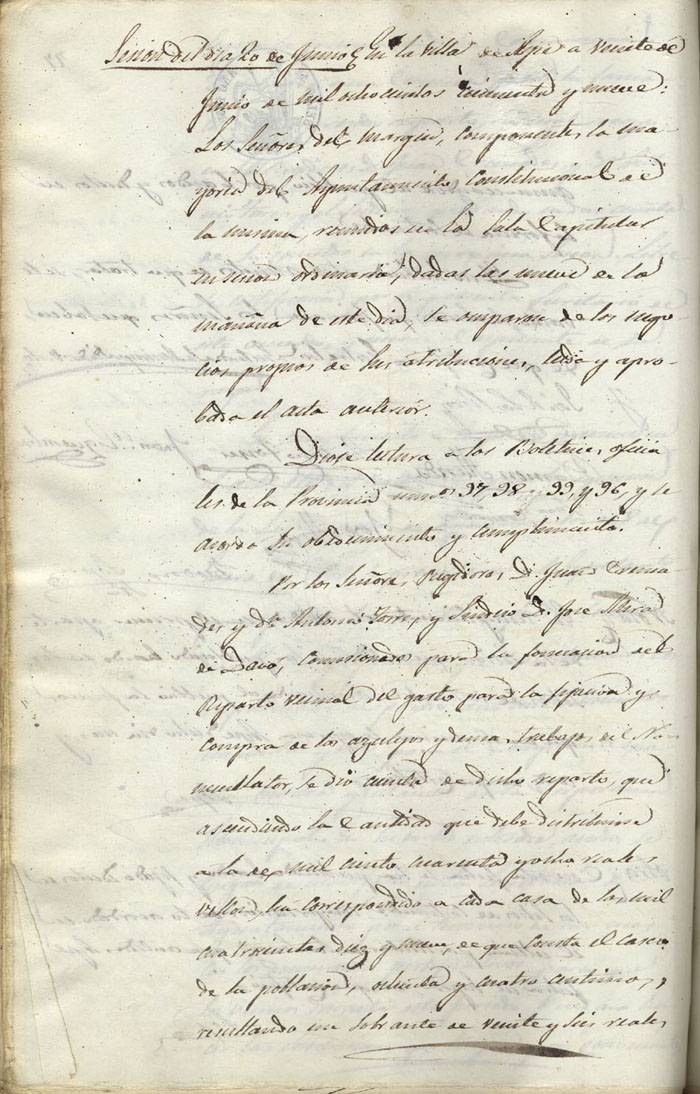 Sesion del dia 20 de Junio En la Villa de Aspe a veinte de
Junio de mil ochocientos cincuenta y nueve:
Los Señores del margen, componentes la ma
yoria del Ayuntamiento Constitucional de
la misma, reunidos en la Sala Capitular
en sesion ordinaria, dadas las nueve de la
mañana de este dia, se ocuparon de los nego
cios propios de sus atribuciones, leida y apro-
bada el acta anterior.
Diose lectura a los Boletines oficia
les de la Provincia num.os 97 98 y 99, y 96, y se
acordó su obedecimiento y cumplimiento.
Por los Señores Regidores D. Juan
y D.n Antonio Torres, y Sindico D. Jose Mira
comisionados para la formacion del
Reparto vecinal del gasto para la fijacion y
compra de los azulejos y demas trabajos del No-
menclator, se dió cuenta de dicho reparto, que
ascendiendo la Cantidad que debe distribuirse
a la de mil ciento cuarenta y ocho reales
vellon, ha correspondido a cada casa de las mil
cuatrocientas diez y nueve, de que consta el casco
de la poblacion, ochenta y cuatro centimos,
resultando un sobrante de veinte y seis reales